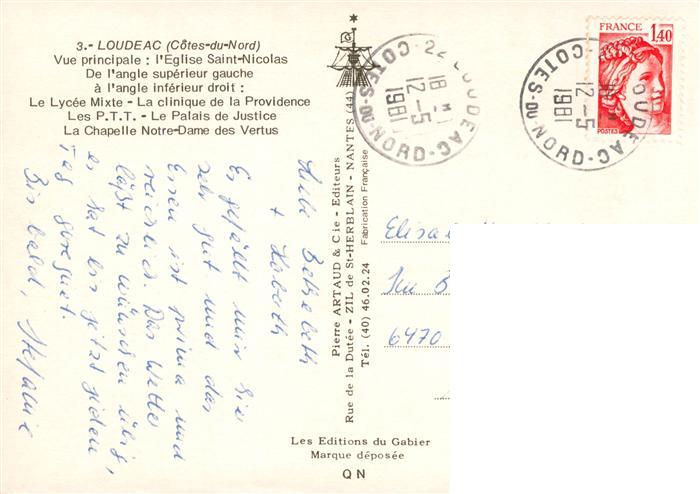 3.- LOUDEAC (Côtes-du-Nord)
Vue principale : l'Eglise Saint-Nicolas
De l'angle supérieur gauche
à l'angle inférieur droit :
Le Lycée Mixte - La clinique de la Providence
Les P.T.T. - Le Palais de Justice
La Chapelle Notre-Dame des Vertus
Liebe
+
Es gefällt mir hier
sehr gut und das
Essen ist prima und
reichlich. Das Wetter
läßt zu wünschen übrig,
es hat bis jetzt jeden
Tag geregnet.
Bis bald, Stefanie
Pierre ARTAUD & Cie - Editeurs
Rue de la Dutée - ZIL de St-HERBLAIN - NANTES (44)
Tél. (40) 46.02.24
Fabrication Française
Les Editions du Gabier
Marque déposée
QN
22 LOUDEAC
18 H
12-5
1981
COTES-DU-NORD
FRANCE
1,40
POSTES
LOUDEAC
12-5
1981
COTES-DU-NORD
6470